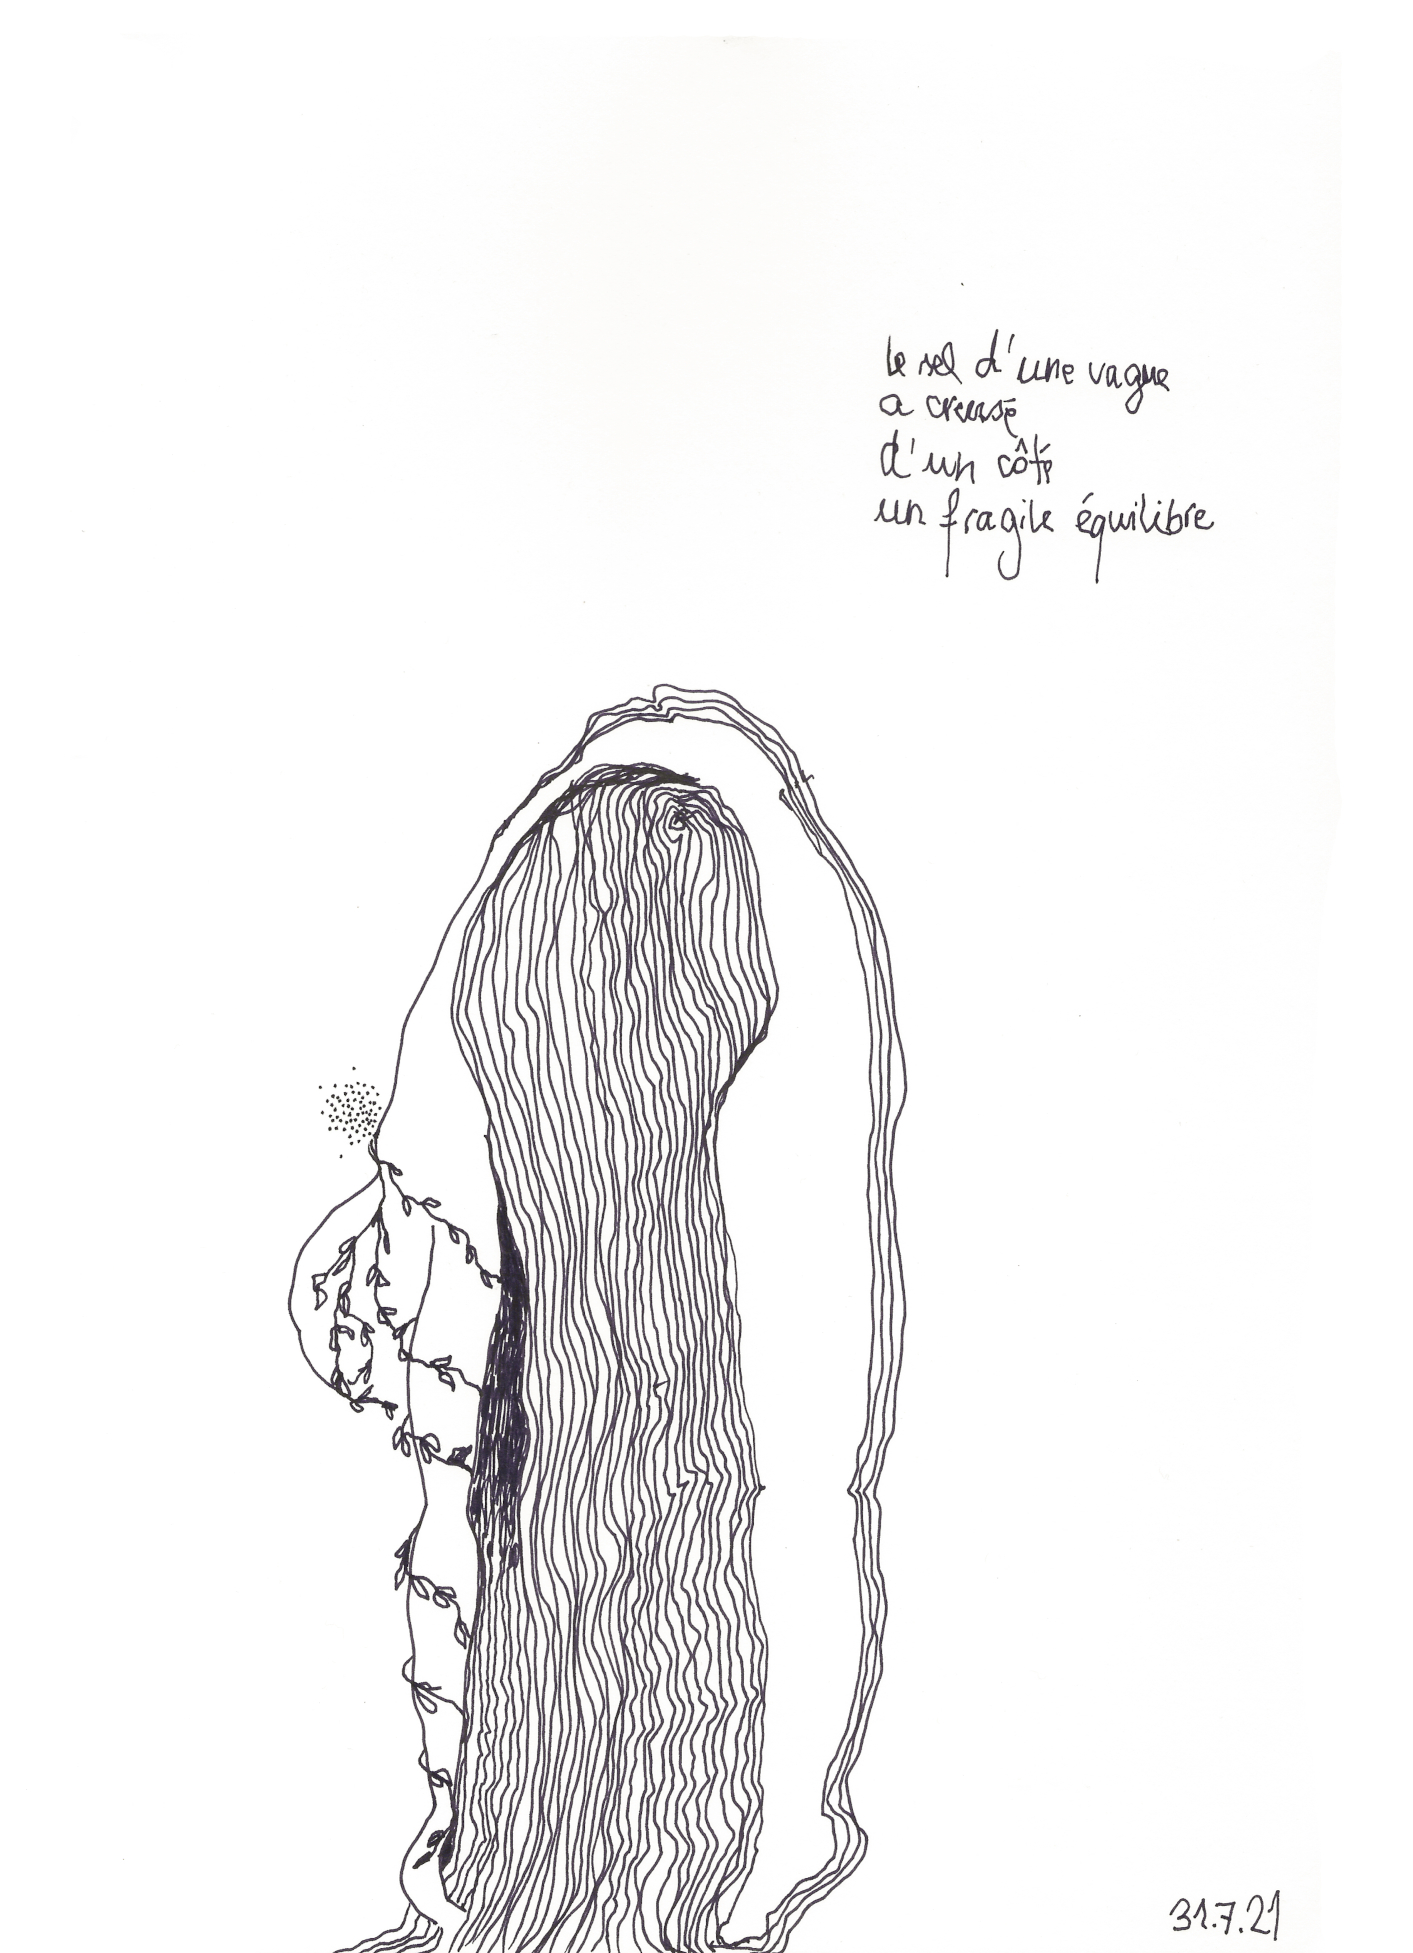 le sel d'une vague
a creusé
d'un côté
un fragile équilibre
31.7.21